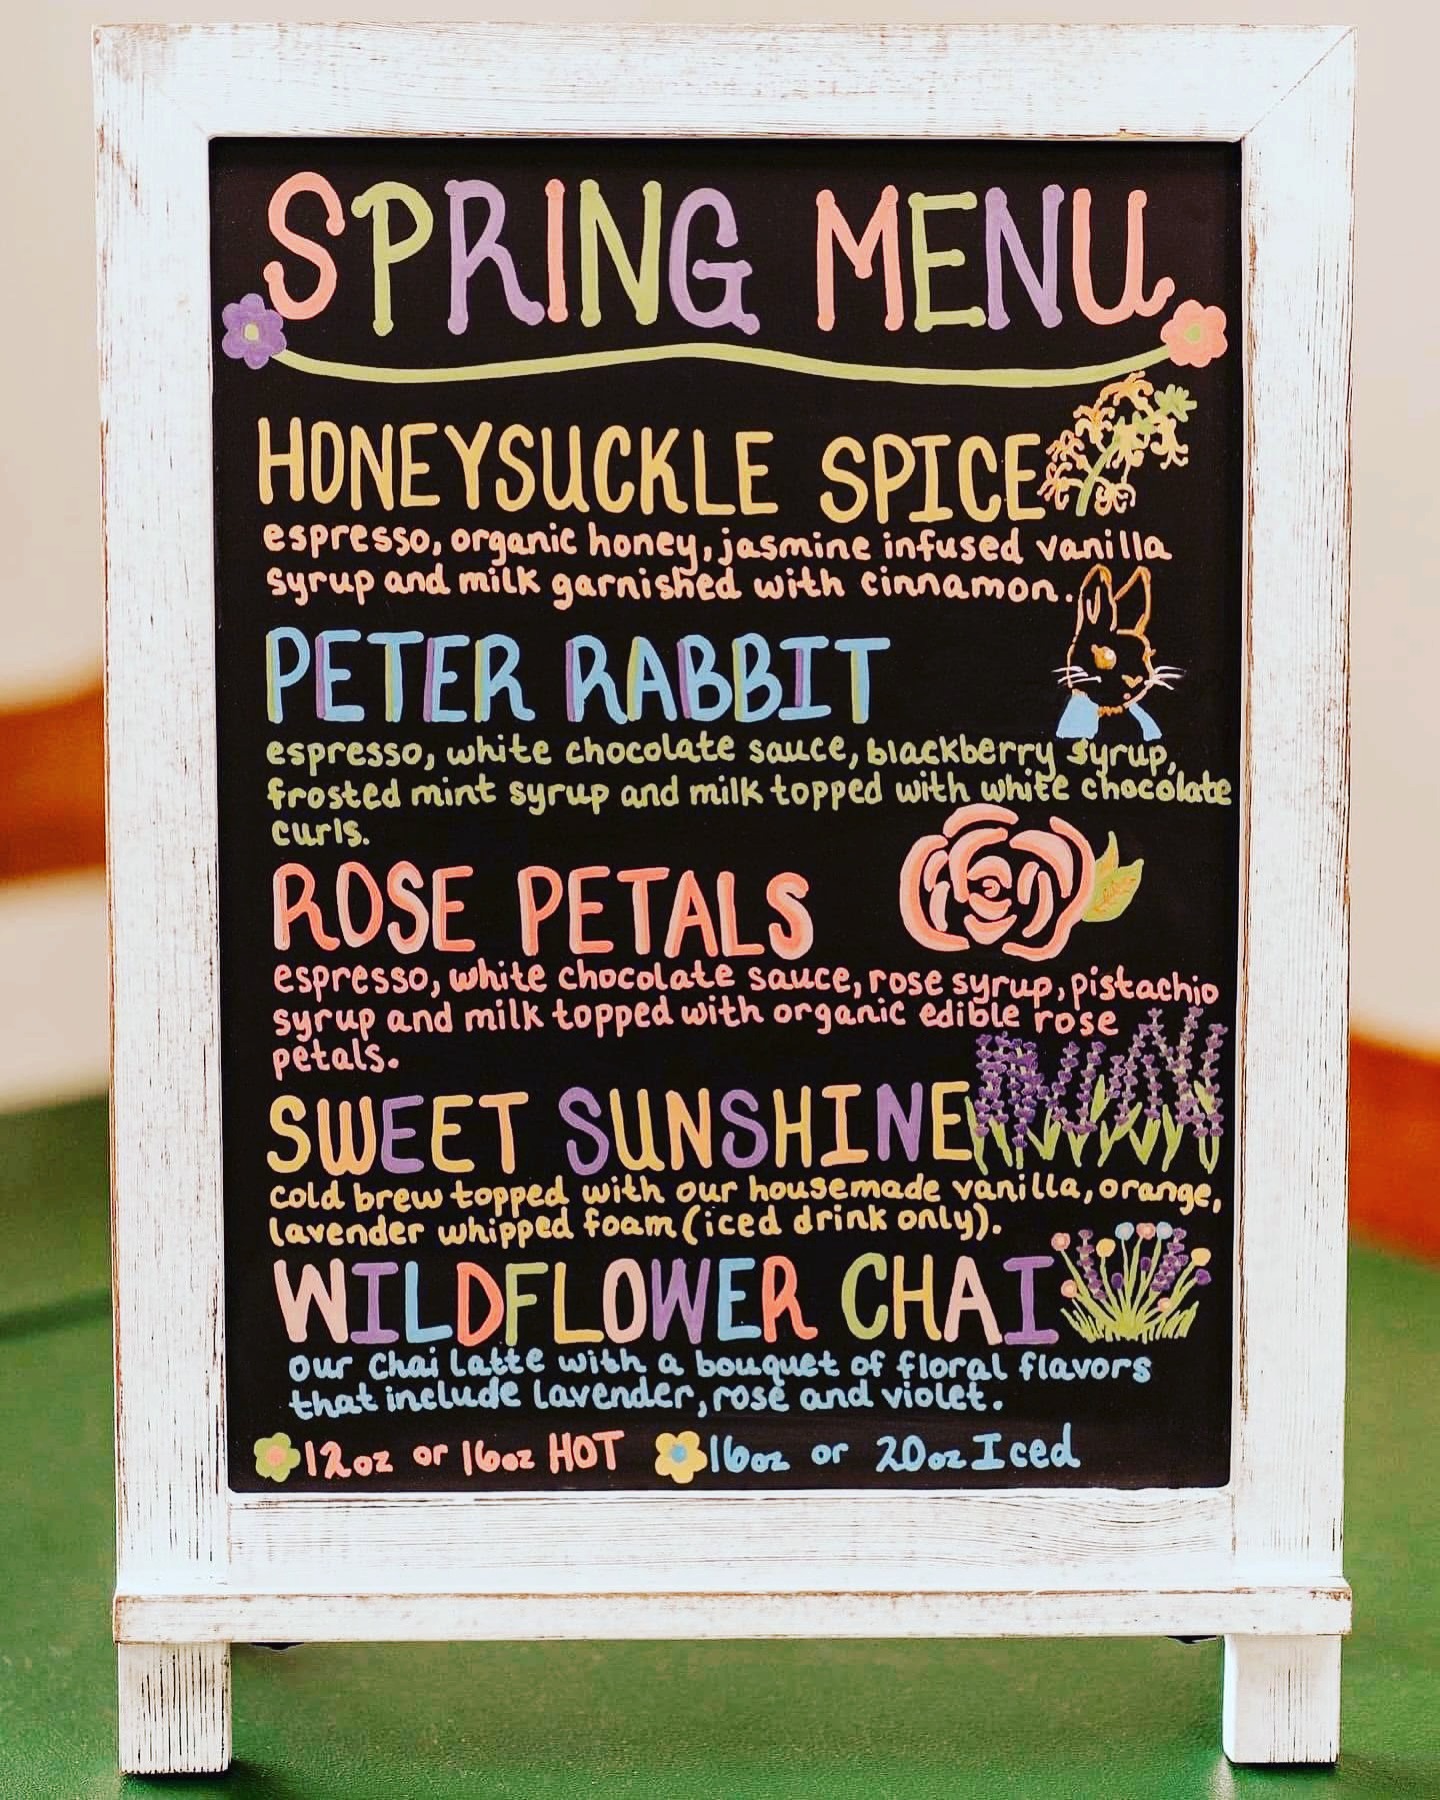 SPRING MENU
HONEYSUCKLE SPICE
espresso, organic honey, jasmine infused vanilla
syrup and milk garnished with cinnamon.
PETER RABBIT
espresso, white chocolate sauce, blackberry syrup,
frosted mint syrup and milk topped with white chocolate
curls.
ROSE PETALS
espresso, white chocolate sauce, rose syrup, pistachio
syrup and milk topped with organic edible rose
petals.
SWEET SUNSHINE
cold brew topped with our housemade vanilla, orange,
lavender whipped foam (iced drink only).
WILDFLOWER CHAI
our chai latte with a bouquet of floral flavors
that include lavender, rose and violet.
12oz or 16oz HOT 16oz or 20oz Iced